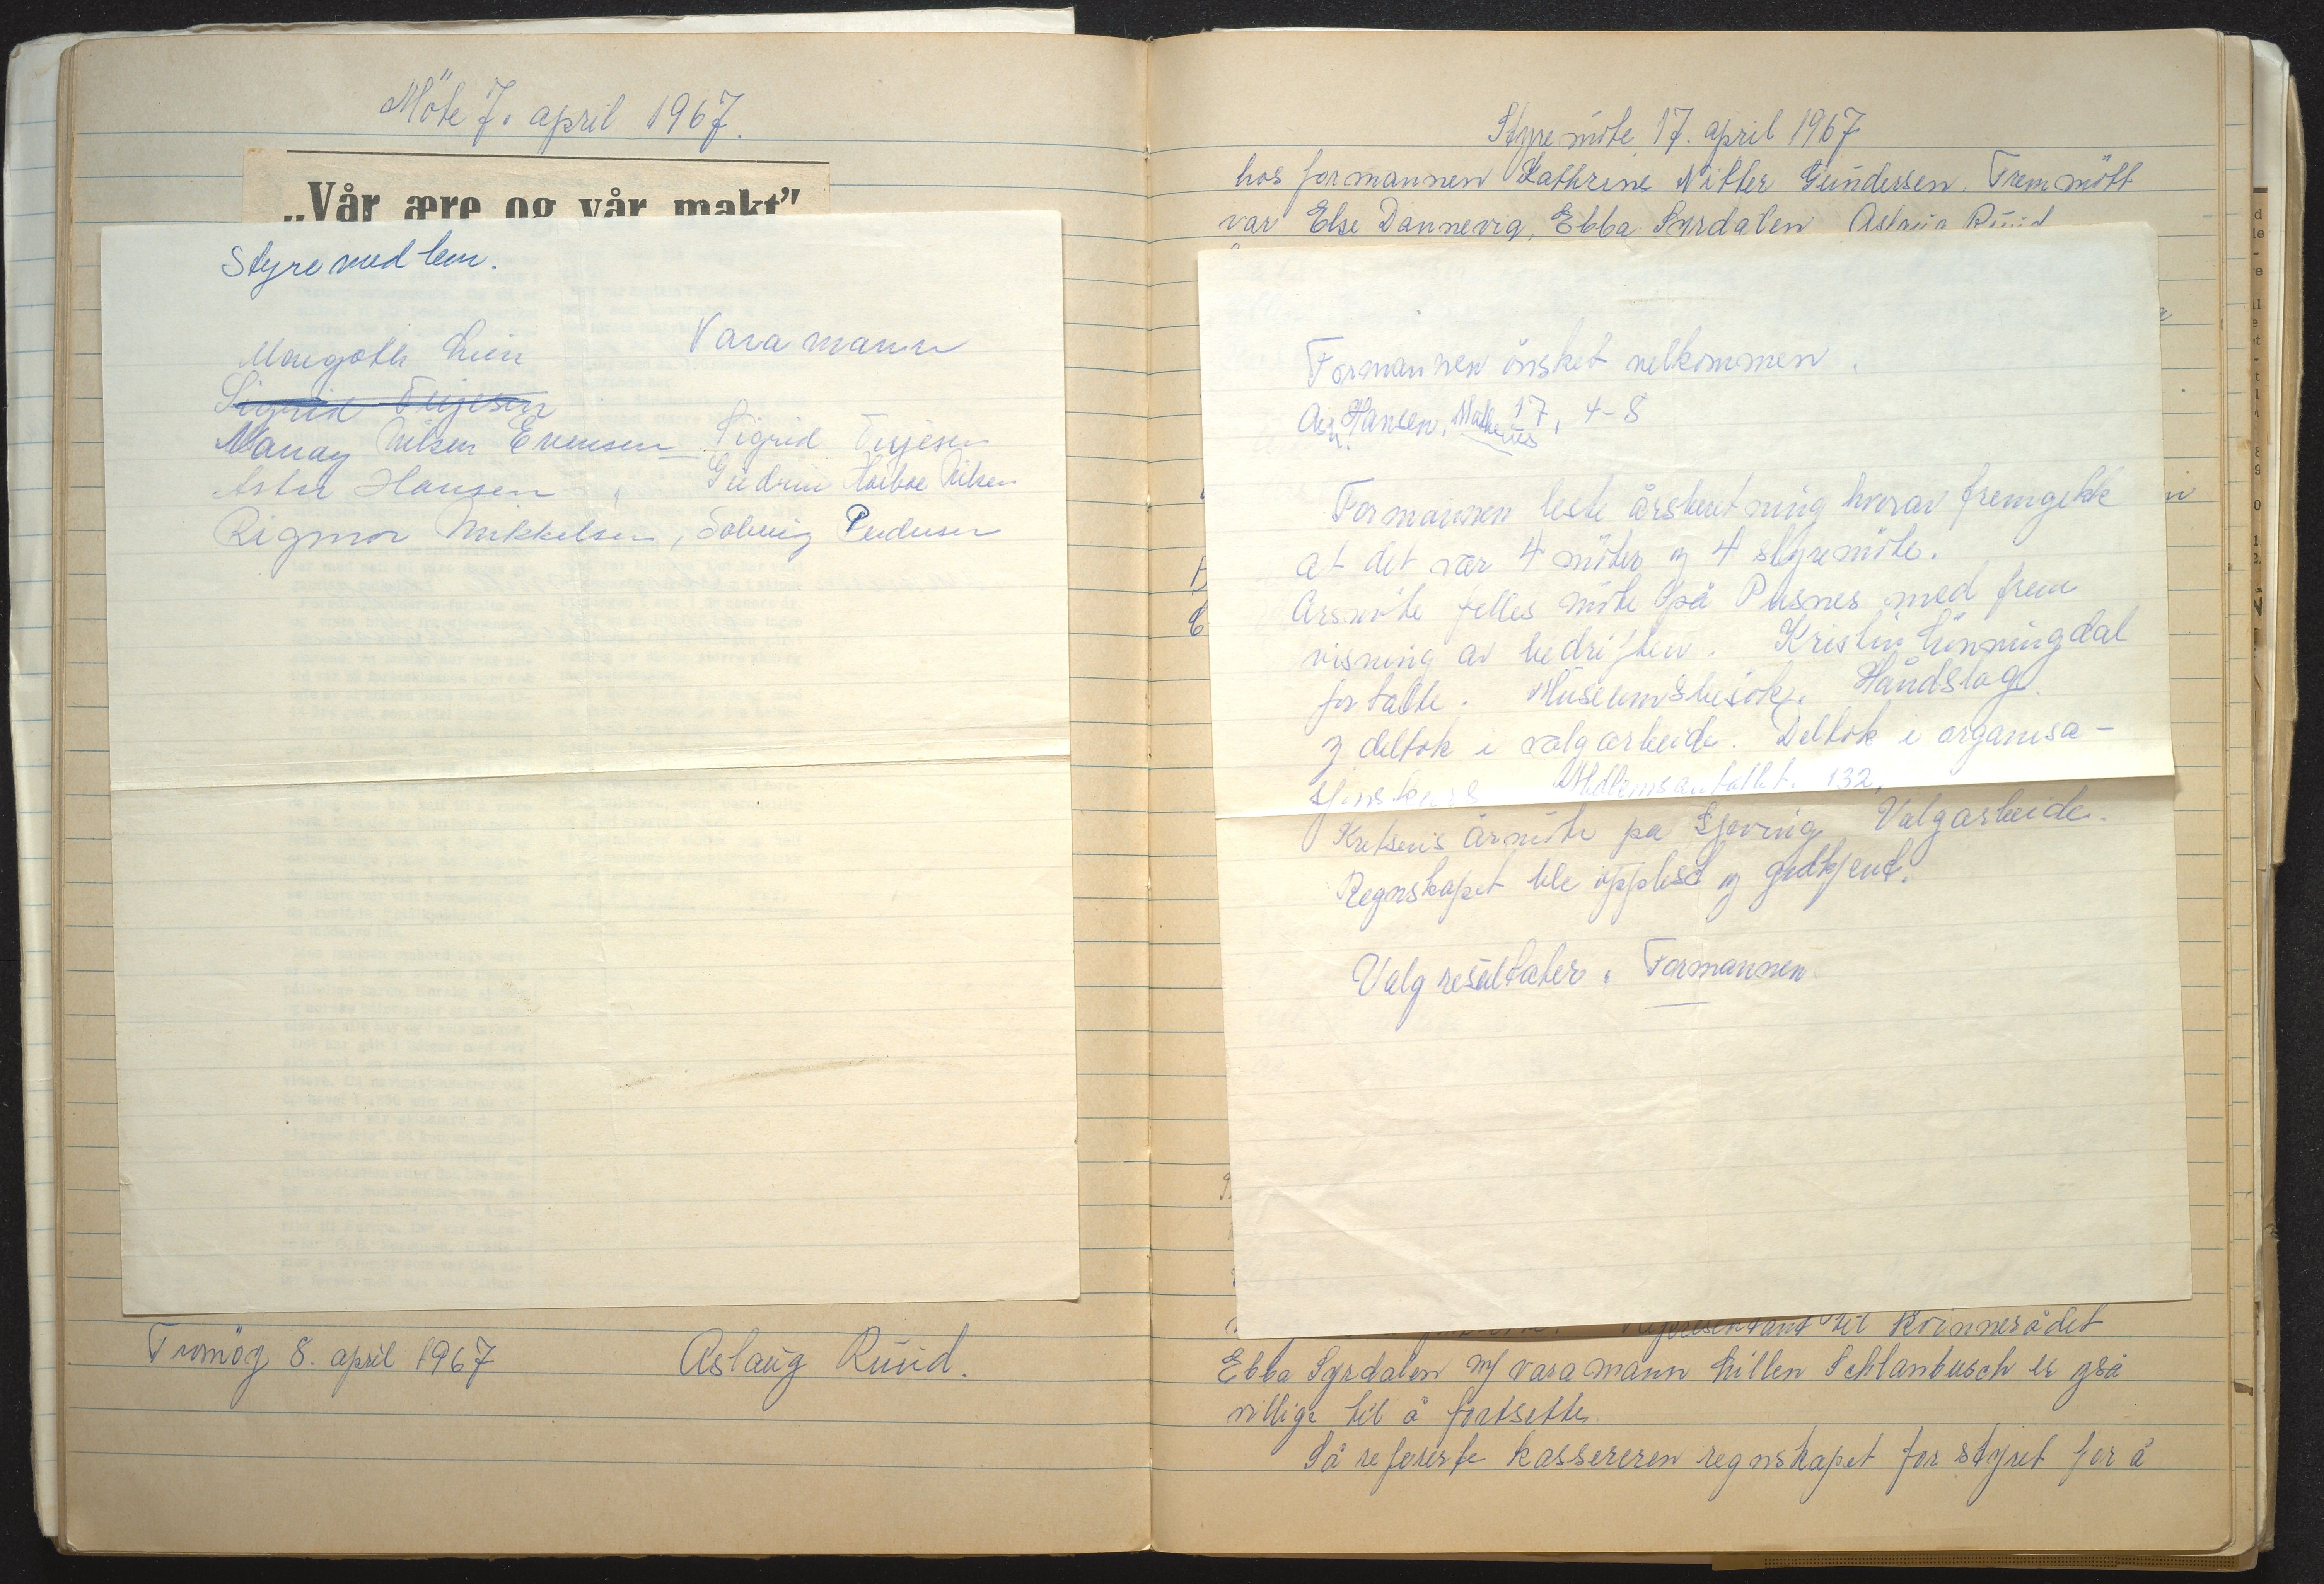 Möte 7. april 1967.
„Vår ære og vår makt"
Styremedlem.
Varamann
Margoth Lien
Sigrid Terjesen
Manay Nilsen Evensen Sigrid Terjesen
Astri Hansen, Gudrun Nilsen
Rigmor Mikkelsen, Solveig Pedersen
Tromöy 8. april 1967 Aslaug Ruud.
Styremöte 17. april 1967
hos formannen Kathrine Nitter Gundersen. Fremmött
var Else Dannevig, Ebba Syrdalen Aslaug Ruud
Formannen önsket velkommen.
Hansen, 17, 4-8
Formannen leste årsberetning hvorav fremgikk
at det var 4 möter og 4 styremöte.
Årsmöte felles möte på Pusnes med frem
visning av bedriften. Kristin Lönningdal
fortalte. Museumsbesök. Håndslag.
og deltok i valgarbeide. Deltok i organisa-
sjonskurs Medlemsantallet. 132.
Kretsens årmöte på Gjeving Valgarbeide.
Regnskapet ble opplest og godkjent.
Valgresultater. Formannen
Representant til Kvinnerådet
Ebba Syrdalen m/ varamann Lillen Schlanbusch er også
villige til å fortsette.
Så refererte kassereren regnskapet for styret for å